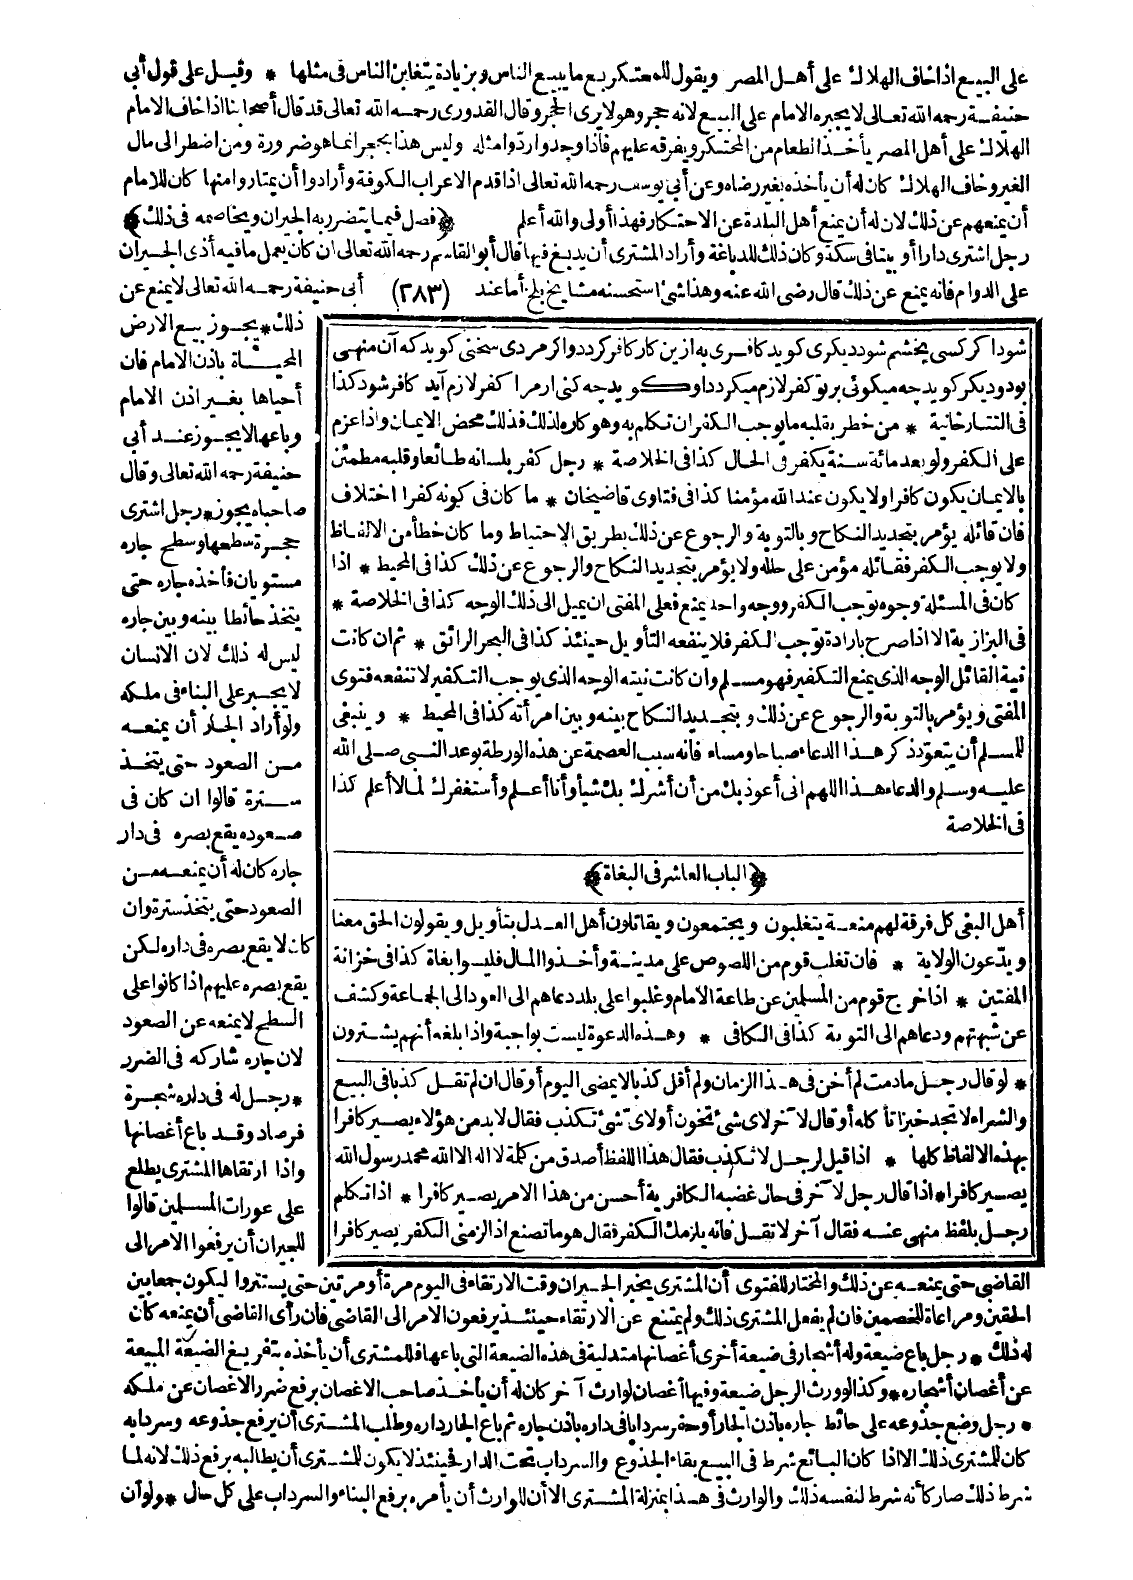 على البيع اذا خاف الهلاك على أهل المصر ويقول للمحتكر بع ما يبيع الناس وبزيادة يتغابن الناس فى مثلها * وقيل على قول أبى
حنيفة رحمه الله تعالى لا يجبره الامام على البيع لانه حجر وهو لا يرى الحجر وقال القدورى رحمه الله تعالى قد قال أصحابنا اذا خاف الامام
الهلاك على أهل المصر يأخذ الطعام من المحتكر ويفرقه عليهم فاذا وجدوا ردوا مثله وليس هذا بحجر انما هو ضرورة ومن اضطر الى مال
الغير وخاف الهلاك كان له أن يأخذه بغير رضاه وعن أبى يوسف رحمه الله تعالى اذا قدم الاعراب الكوفة وأرادوا أن يمتاروا منها كان للامام
أن يمنعهم عن ذلك لان له أن يمنع أهل البلدة عن الاحتكار فهذا أولى والله أعلم ﴿فصل فيما يتضرر به الجيران ويخاصمه فى ذلك﴾
رجل اشترى دارا أو بيتا فى سكة وكان ذلك للدباغة وأراد المشترى أن يدبغ فيها قال أبو القاسم رحمه الله تعالى ان كان يعمل ما فيه أذى الجيران
على الدوام فانه يمنع عن ذلك قال رضى الله عنه وهذا شئ استحسنه مشايخ بلخ أما عند (٢٨٣) أبى حنيفة رحمه الله تعالى لا يمنع عن
ذلك * يجوز بيع الارض
المحياة باذن الامام فان
أحياها بغير اذن الامام
وباعها لا يجوز عند أبى
حنيفة رحمه الله تعالى وقال
صاحباه يجوز * رجل اشترى
حجرة سطحها وسطح جاره
مستويان فأخذه جاره حتى
يتخذ حائطا بينه وبين جاره
ليس له ذلك لان الانسان
لا يجبر على البناء فى ملكه
ولو أراد الجار أن يمنعه
من الصعود حتى يتخذ
سترة قالوا ان كان فى
صعوده يقع بصره فى دار
جاره كان له أن يمنعه من
الصعود حتى يتخذ سترة وان
كان لا يقع بصره فى داره لكن
يقع بصره عليهم اذا كانوا على
السطح لا يمنعه عن الصعود
لان جاره شاركه فى الضرر
* رجل له فى داره شجرة
فرصاد وقد باع أغصانها
واذا ارتقاها المشترى يطلع
على عورات المسلمين قالوا
للجيران أن يرفعوا الامر الى
القاضى حتى يمنعه عن ذلك والمختار للفتوى أن المشترى يخبر الجيران وقت الارتقاء فى اليوم مرة أو مرتين حتى يستتروا ليكون جمعا بين
الحقين ومراعاة للخصمين فان لم يفعل المشترى ذلك ولم يمتنع عن الارتقاء حينئذ يرفعون الامر الى القاضى فان رأى القاضى أن يمنعه كان
له ذلك * رجل باع ضيعة وله أشجار فى ضيعة أخرى أغصانها متدلية فى هذه الضيعة التى باعها فللمشترى أن يأخذه بتفريغ الضيعة المبيعة
عن أغصان أشجاره * وكذا لو ورث الرجل ضيعة وفيها أغصان لوارث آخر كان له أن يأخذ صاحب الاغصان برفع ضرر الاغصان عن ملكه
* رجل وضع جذوعه على حائط جاره باذن الجار أو حفر سردابا فى داره باذن جاره ثم باع الجار داره وطلب المشترى أن يرفع جذوعه وسردابه
كان للمشترى ذلك الا اذا كان البائع شرط فى البيع بقاء الجذوع والسرداب تحت الدار فحينئذ لا يكون للمشترى أن يطالبه برفع ذلك لانه لما
شرط ذلك صار كأنه شرط لنفسه ذلك والوارث فى هذا بمنزلة المشترى الا أن للوارث أن يأمره برفع البناء والسرداب على كل حال * ولو أن
شود اكر كسى بخشم شود ديكرى كويد كافرى به ازين كار كافر كردد واكر مردى سخنى كويد كه آن منهى
بود وديكر كويد چه ميكوئى بر تو كفر لازم ميكردد او كويد چه كنى ار مرا كفر لازم آيد كافر شود كذا
فى التتارخانية * من خطر بقلبه ما يوجب الكفر ان تكلم به وهو كاره لذلك فذلك محض الايمان واذا عزم
على الكفر ولو بعد مائة سنة يكفر فى الحال كذا فى الخلاصة * رجل كفر بلسانه طائعا وقلبه مطمئن
بالايمان يكون كافرا ولا يكون عند الله مؤمنا كذا فى فتاوى قاضيخان * ما كان فى كونه كفرا اختلاف
فان قائله يؤمر بتجديد النكاح وبالتوبة والرجوع عن ذلك بطريق الاحتياط وما كان خطأ من الالفاظ
ولا يوجب الكفر فقائله مؤمن على حاله ولا يؤمر بتجديد النكاح والرجوع عن ذلك كذا فى المحيط * اذا
كان فى المسئلة وجوه توجب الكفر ووجه واحد يمنع فعلى المفتى ان يميل الى ذلك الوجه كذا فى الخلاصة *
فى البزازية الا اذا صرح بارادة توجب الكفر فلا ينفعه التأويل حينئذ كذا فى البحر الرائق * ثم ان كانت
نية القائل الوجه الذى يمنع التكفير فهو مسلم وان كانت نيته الوجه الذى يوجب التكفير لا تنفعه فتوى
المفتى ويؤمر بالتوبة والرجوع عن ذلك وبتجديد النكاح بينه وبين امرأته كذا فى المحيط * وينبغى
للمسلم أن يتعوذ ذكر هذا الدعاء صباحا ومساء فانه سبب العصمة عن هذه الورطة بوعد النبى صلى الله
عليه وسلم والدعاء هذا اللهم انى أعوذ بك من أن أشرك بك شيأ وأنا أعلم وأستغفرك لما لا أعلم كذا
فى الخلاصة
﴿الباب العاشر فى البغاة﴾
أهل البغى كل فرقة لهم منعة يتغلبون ويجتمعون ويقاتلون أهل العدل بتأويل ويقولون الحق معنا
ويدّعون الولاية * فان تغلب قوم من اللصوص على مدينة وأخذوا المال فليسوا بغاة كذا فى خزانة
المفتين * اذا خرج قوم من المسلمين عن طاعة الامام وغلبوا على بلد دعاهم الى العود الى الجماعة وكشف
عن شبهتهم ودعاهم الى التوبة كذا فى الكافى * وهذه الدعوة ليست بواجبة واذا بلغه أنهم يشترون
* لو قال رجل ما دمت لم أخن فى هذا الزمان ولم أقل كذبا لا يمضى اليوم أو قال ان لم تقل كذبا فى البيع
والشراء لا تجد خبزا تأكله أو قال لآخر لاى شئ تخون أو لاى شئ تكذب فقال لا بد من هؤلاء يصير كافرا
بهذه الالفاظ كلها * اذا قيل لرجل لا تكذب فقال هذا اللفظ أصدق من كلمة لا اله الا الله محمد رسول الله
يصير كافرا * اذا قال رجل لآخر فى حال غضبه الكافرية أحسن من هذا الامر يصير كافرا * اذا تكلم
رجل بلفظ منهى عنه فقال آخر لا تقل فانه يلزمك الكفر فقال هو ما تصنع اذ الزمنى الكفر يصير كافرا